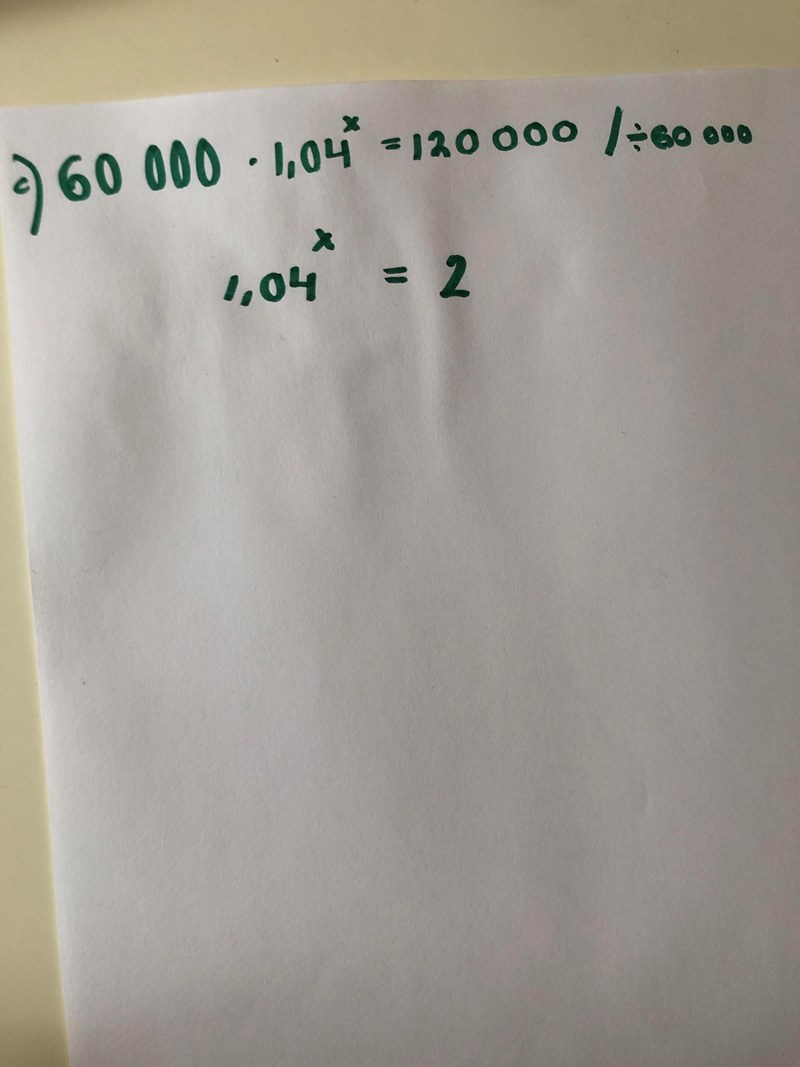 c) 60 000 · 1,04ˣ = 120 000 / ÷ 60 000
1,04ˣ = 2